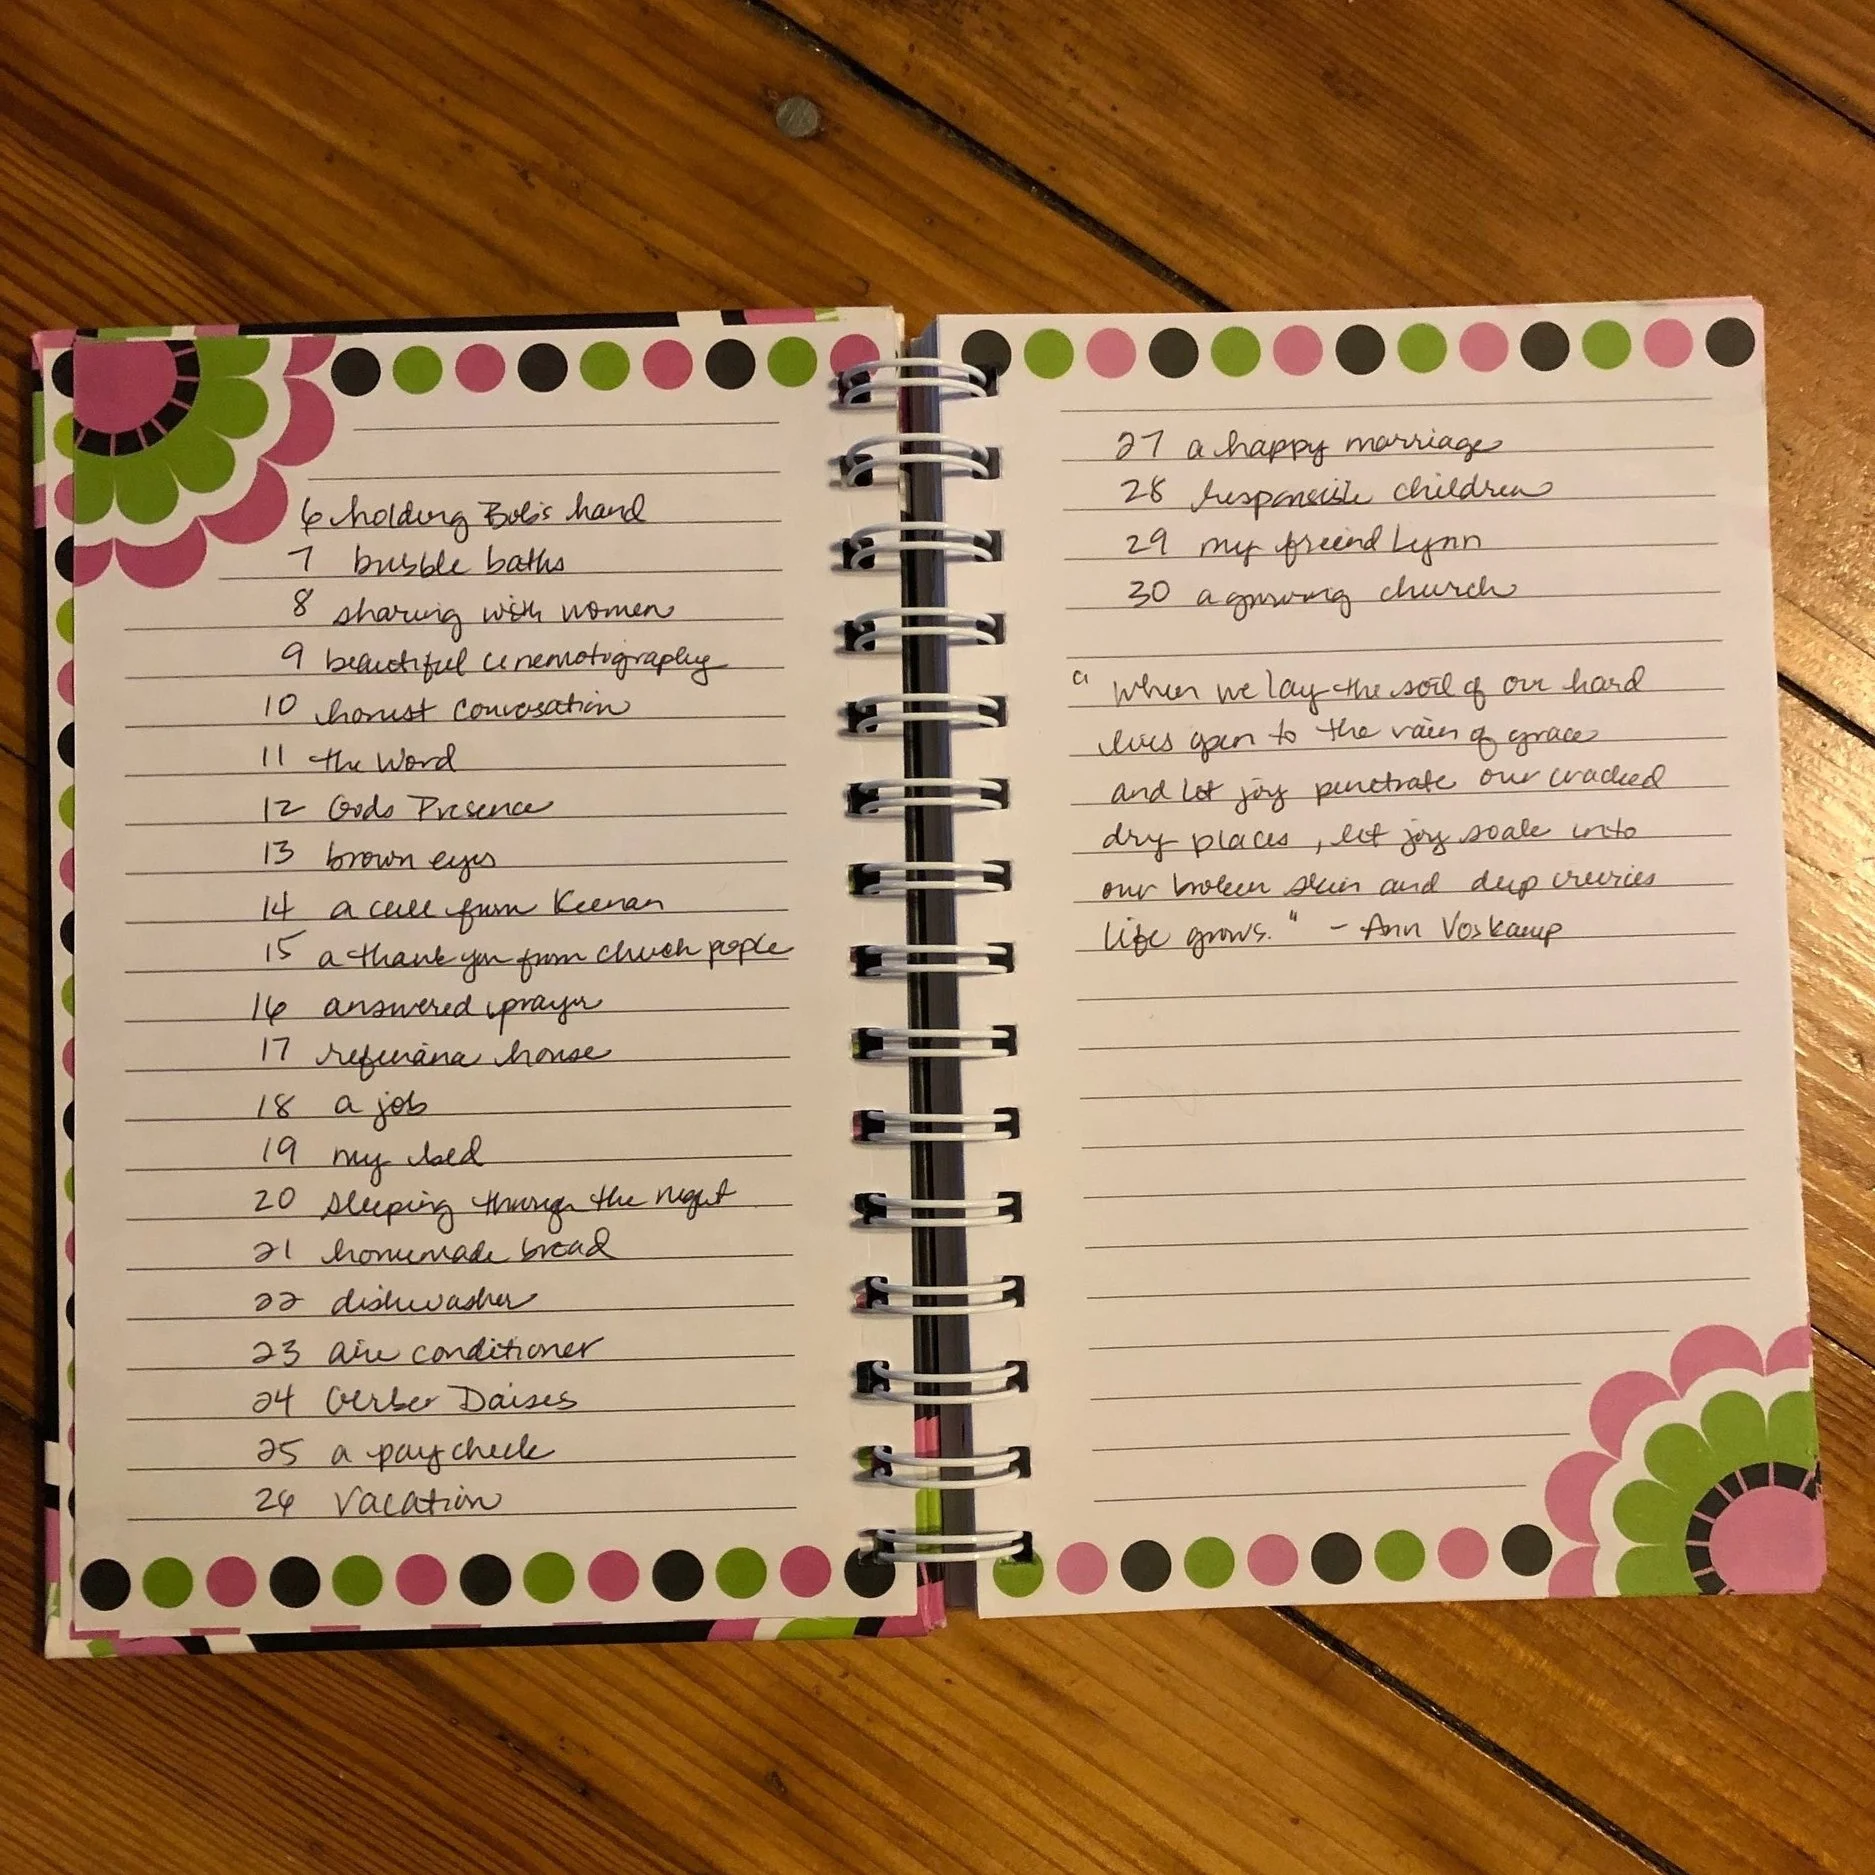 6 holding Bob's hand
7 bubble baths
8 sharing with women
9 beautiful cinematography
10 honest conversation
11 the Word
12 Gods Presence
13 brown eyes
14 a call from Keenan
15 a thank you from church people
16 answered prayer
17 house
18 a job
19 my bed
20 sleeping through the night
21 homemade bread
22 dishwasher
23 air conditioner
24 Gerber Daises
25 a paycheck
26 vacation
27 a happy marriage
28 responsible children
29 my friend Lynn
30 a growing church
"When we lay the soil of our hard
lives open to the rain of grace
and let joy penetrate our cracked
dry places, let joy soak into
our broken skin and deep crevices
life grows." - Ann Voskamp